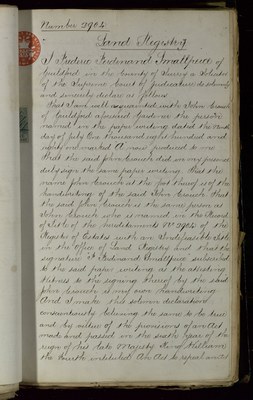 Number 2902
Land Registry
I Frederic Ferdinand Smallpeice of
Guildford in the County of Surrey a Solicitor
of the Supreme Court of Judicature do solemnly
and sincerely declare as follows
That I am well acquainted with John Crouch
of Guildford aforesaid Gardener the person
named in the paper writing dated the 22nd
day of July One thousand eight hundred and
eighty marked A now produced to me
That the said John Crouch did in my presence
duly sign the same paper writing. That the
name John Crouch at the foot thereof is of the
handwriting of the said John Crouch That
the said John Crouch is the same person as
John Crouch who is named in the Record
of Title of the hereditaments No 2902 of the
Register of Estates with an Indefeasible Title
in the Office of Land Registry and that the
signature F Ferdinand Smallpeice subscribed
to the said paper writing as the attesting
Witness to the signing thereof by the said
John Crouch is my own handwriting
And I make this solemn declaration
conscientiously believing the same to be true
and by virtue of the provisions of an Act
made and passed in the sixth year of the
reign of his late Majesty King William
the Fourth intituled An Act to repeal an Act